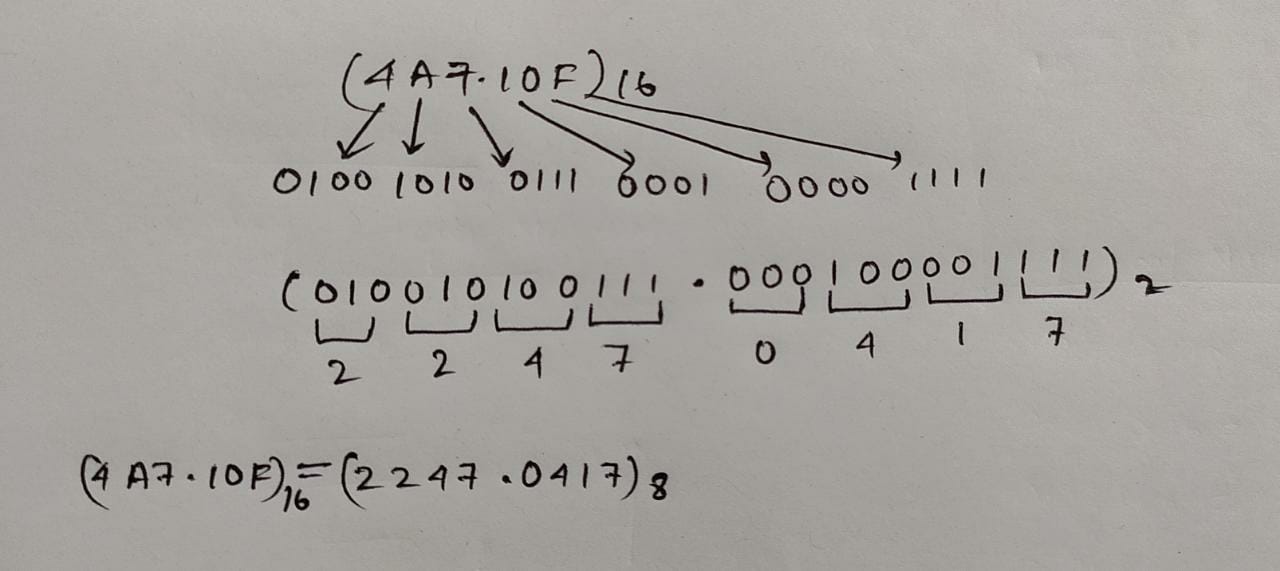 (4A7.10F)16
0100 1010 0111 0001 0000 1111
(010010100111.000100001111)2
2 2 4 7 0 4 1 7
(4A7.10F)16=(2247.0417)8